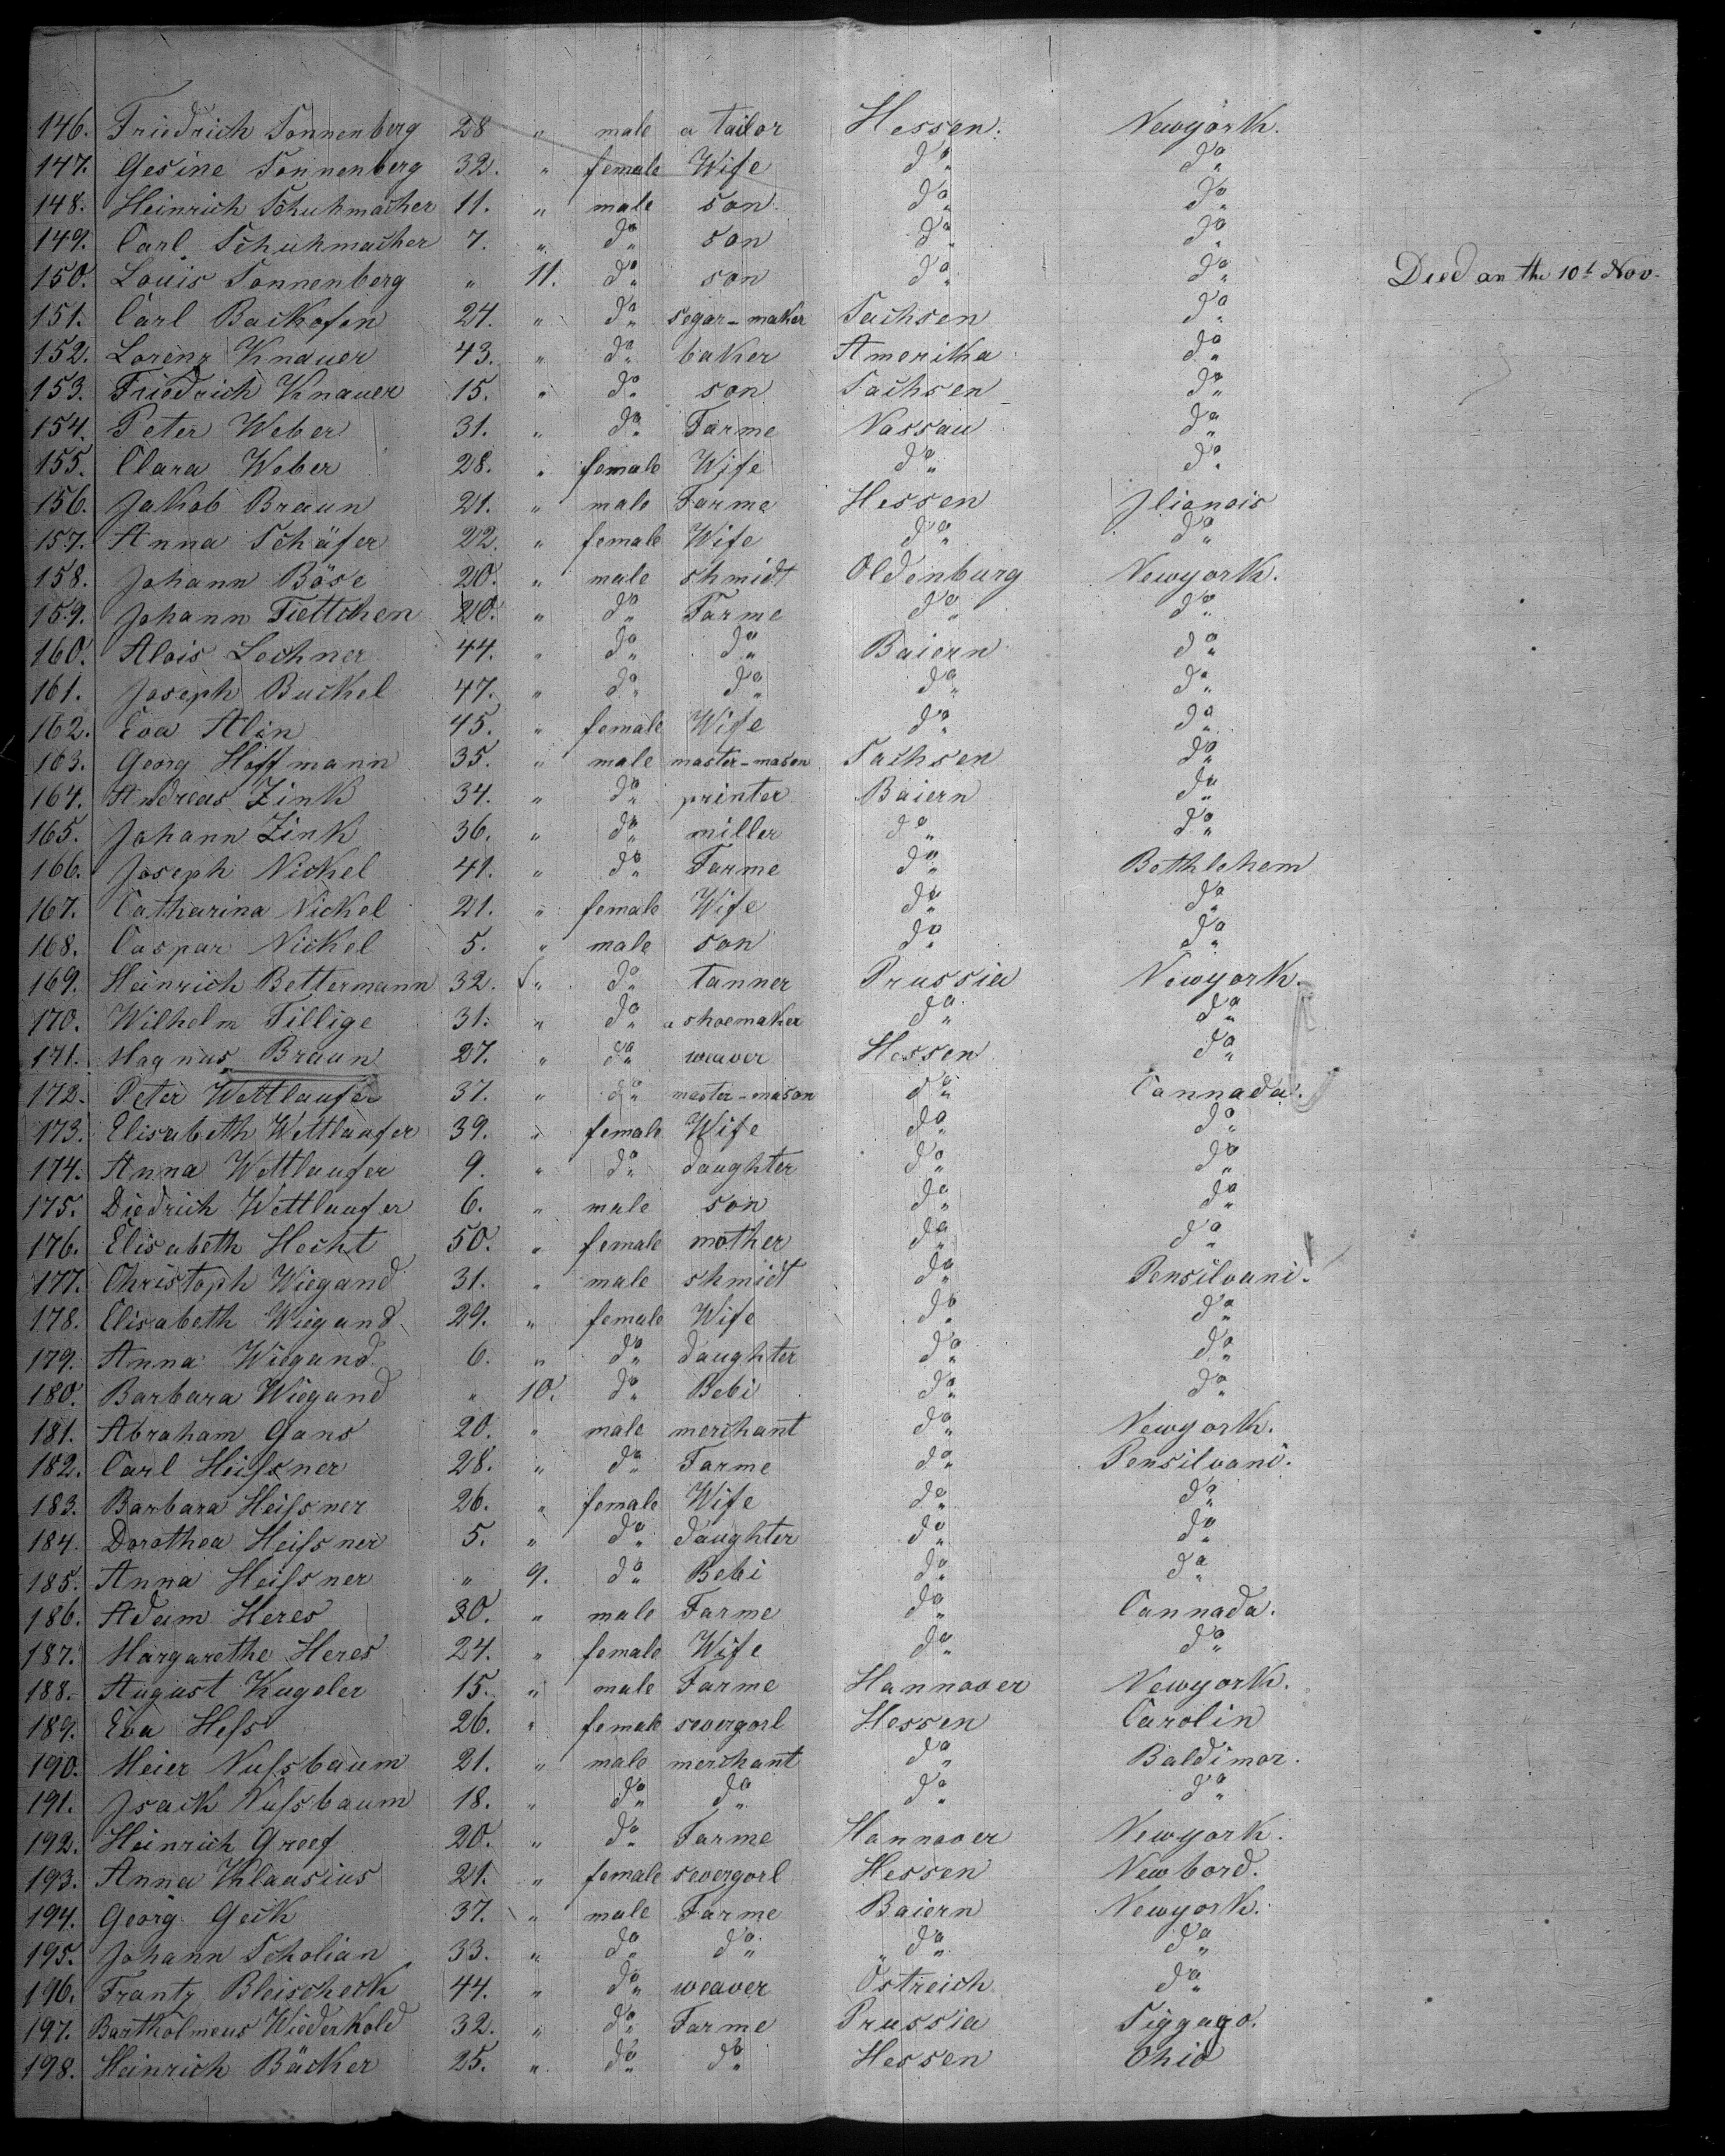 146. Friedrich Sonnenberg 28 " male a tailor Hessen. Newyörk.
147. Gesine Sonnenberg 32. " female Wife do " do "
148. Heinrich Schuhmacher 11. " male son do " do "
149. Carl Schuhmacher 7. " do " son do " do "
150. Louis Sonnenberg " 11. do " son do " do " Died on the 10t Nov.
151. Carl Backofen 24. " do " segar-maker Sachsen do "
152. Lorenz Knauer 43. " do " baker Amerika do "
153. Friedrich Knauer 15. " do " son Sachsen do "
154. Peter Weber 31. " do " Farme Nassau do "
155. Clara Weber 28. " female Wife do " do "
156. Jakob Braun 21. " male Farme Hessen Jlionois
157. Anna Schäfer 22. " female Wife do " do "
158. Johann Böse 20. " male shmidt Oldenburg Newyork.
159. Johann Tiettchen 20. " do " Farme do " do "
160. Alois Lechner 44. " do " do " Baiern do "
161. Joseph Buckel 47. " do " do " do " do "
162. Eva Alin 45. " female Wife do " do "
163. Georg Hoffmann 35. " male master-mason Sachsen do "
164. Andreas Zink 34. " do " printer Baiern do "
165. Johann Zink 36. " do " miller do " do "
166. Joseph Nickel 41. " do " Farme do " Bethlehem
167. Catharina Nickel 21. " female Wife do " do "
168. Caspar Nickel 5. " male son do " do "
169. Heinrich Bettermann 32. " do " tanner Prussia Newyork.
170. Wilhelm Tillige 31. " do " a shoemaker do " do "
171. Magnus Braun 27. " do " weaver Hessen do "
172. Peter Wettlaufer 37. " do " master-mason do " Cannada.
173. Elisabeth Wettlaufer 39. " female Wife do " do "
174. Anna Wettlaufer 9. " do " daughter do " do "
175. Diedrich Wettlaufer 6. " male son do " do "
176. Elisabeth Hecht 50. " female mother do " do "
177. Christoph Wiegand 31. " male shmidt do " Pensilvani.
178. Elisabeth Wiegand 29. " female Wife do " do "
179. Anna Wiegand 6. " do " daughter do " do "
180. Barbara Wiegand " 10. do " Bebi do " do "
181. Abraham Gans 20. " male merchant do " Newyork.
182. Carl Heißner 28. " do " Farme do " Pensilvani.
183. Barbara Heißner 26. " female Wife do " do "
184. Dorothea Heißner 5. " do " daughter do " do "
185. Anna Heißner " 9. do " Bebi do " do "
186. Adam Heres 30. " male Farme do " Cannada.
187. Margarethe Heres 24. " female Wife do " do "
188. August Kugeler 15. " male Farme Hannover Newyork.
189. Eva Heß 26. " female severgorl Hessen Carolin
190. Meier Nußbaum 21. " male merchant do " Baldimor.
191. Jsack Nußbaum 18. " do " do " do " do "
192. Heinrich Greef 20. " do " Farme Hannover Newyork.
193. Anna Klausius 21. " female severgorl Hessen Newbord.
194. Georg Geck 37. " male Farme Baiern Newyork.
195. Johann Scholian 33. " do " do " " do " do "
196. Frantz Bleischeck 44. " do " weaver Östreich do "
197. Bartholmeus Wiederhold 32. " do " Farme Prussia Siggago.
198. Heinrich Bäcker 25. " do " do " Hessen Ohio